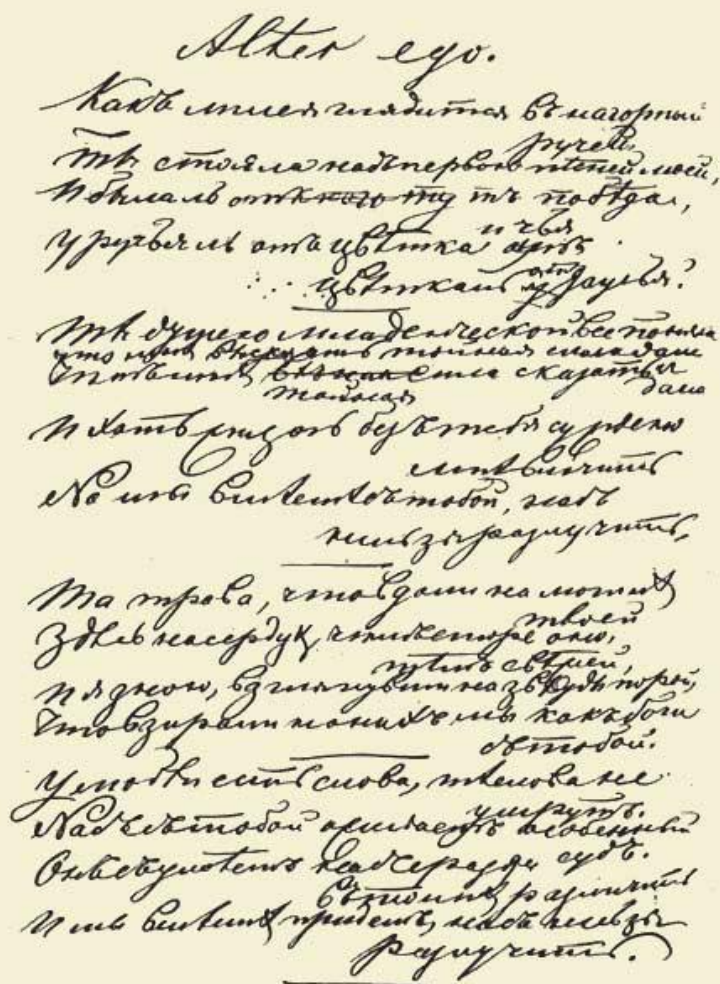 Alter ego.
Какъ лилея глядится въ нагорный
ручей,
Ты стояла надъ первою пѣсней моей,
И была ль тутъ побѣда,
и чья
У ручья ль отъ цвѣтка
цвѣтка ль ручья?
Ты душею младенческой все поняла
что мнѣ высказать тайная сила дала
сила сказать
тайная дала
И хоть жизнь безъ тебя суждено
мнѣ влачить
Но мы вмѣстѣ съ тобой, насъ
нельзя разлучить,
Та трава, что вдали на могилѣ
твоей
Здѣсь на сердцѣ, чѣмъ старе оно,
тѣмъ свѣжей,
И я знаю, взглянувши на звѣзды порой,
Что взирали на нихъ мы какъ боги
съ тобой.
У любви есть слова, тѣ слова не
умрутъ.
Насъ съ тобой ожидаетъ особенный
судъ.
Онъ съумѣетъ насъ сразу
въ толпѣ различить
И мы вмѣстѣ придемъ, насъ нельзя
разлучить.